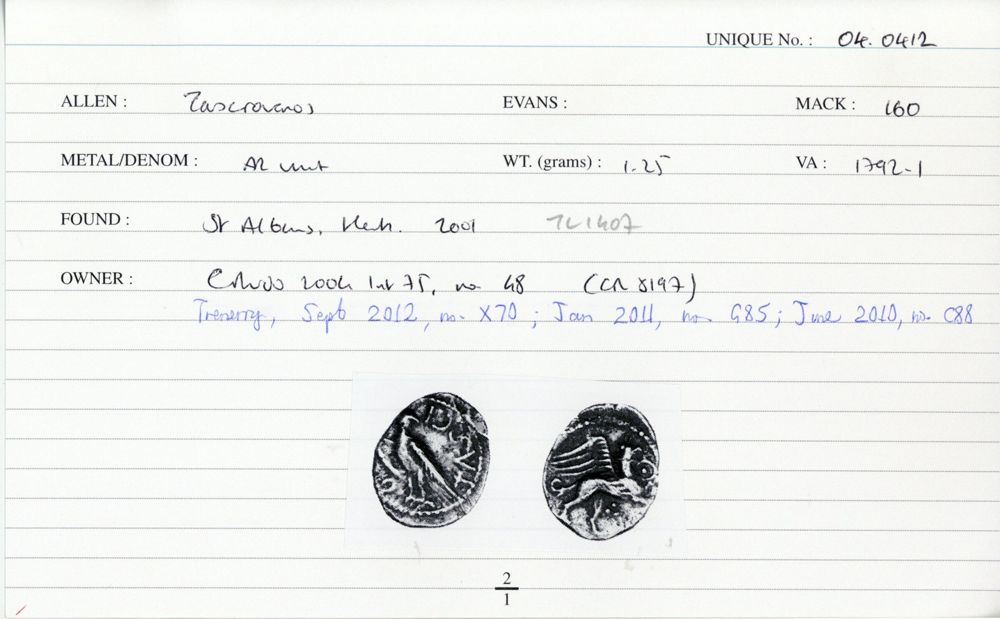 UNIQUE No. : 04.0412
ALLEN : Tasciovanos EVANS : MACK : 160
METAL/DENOM : AR unit WT. (grams) : 1.25 VA : 1792-1
FOUND : St Albans, Herts. 2001 TL1407
OWNER : 2004 75, no 48 (CR 8197)
Trenerry, Sept 2012, no. X70 ; Jan 2011, no. G85 ; June 2010, no. C88
2
1